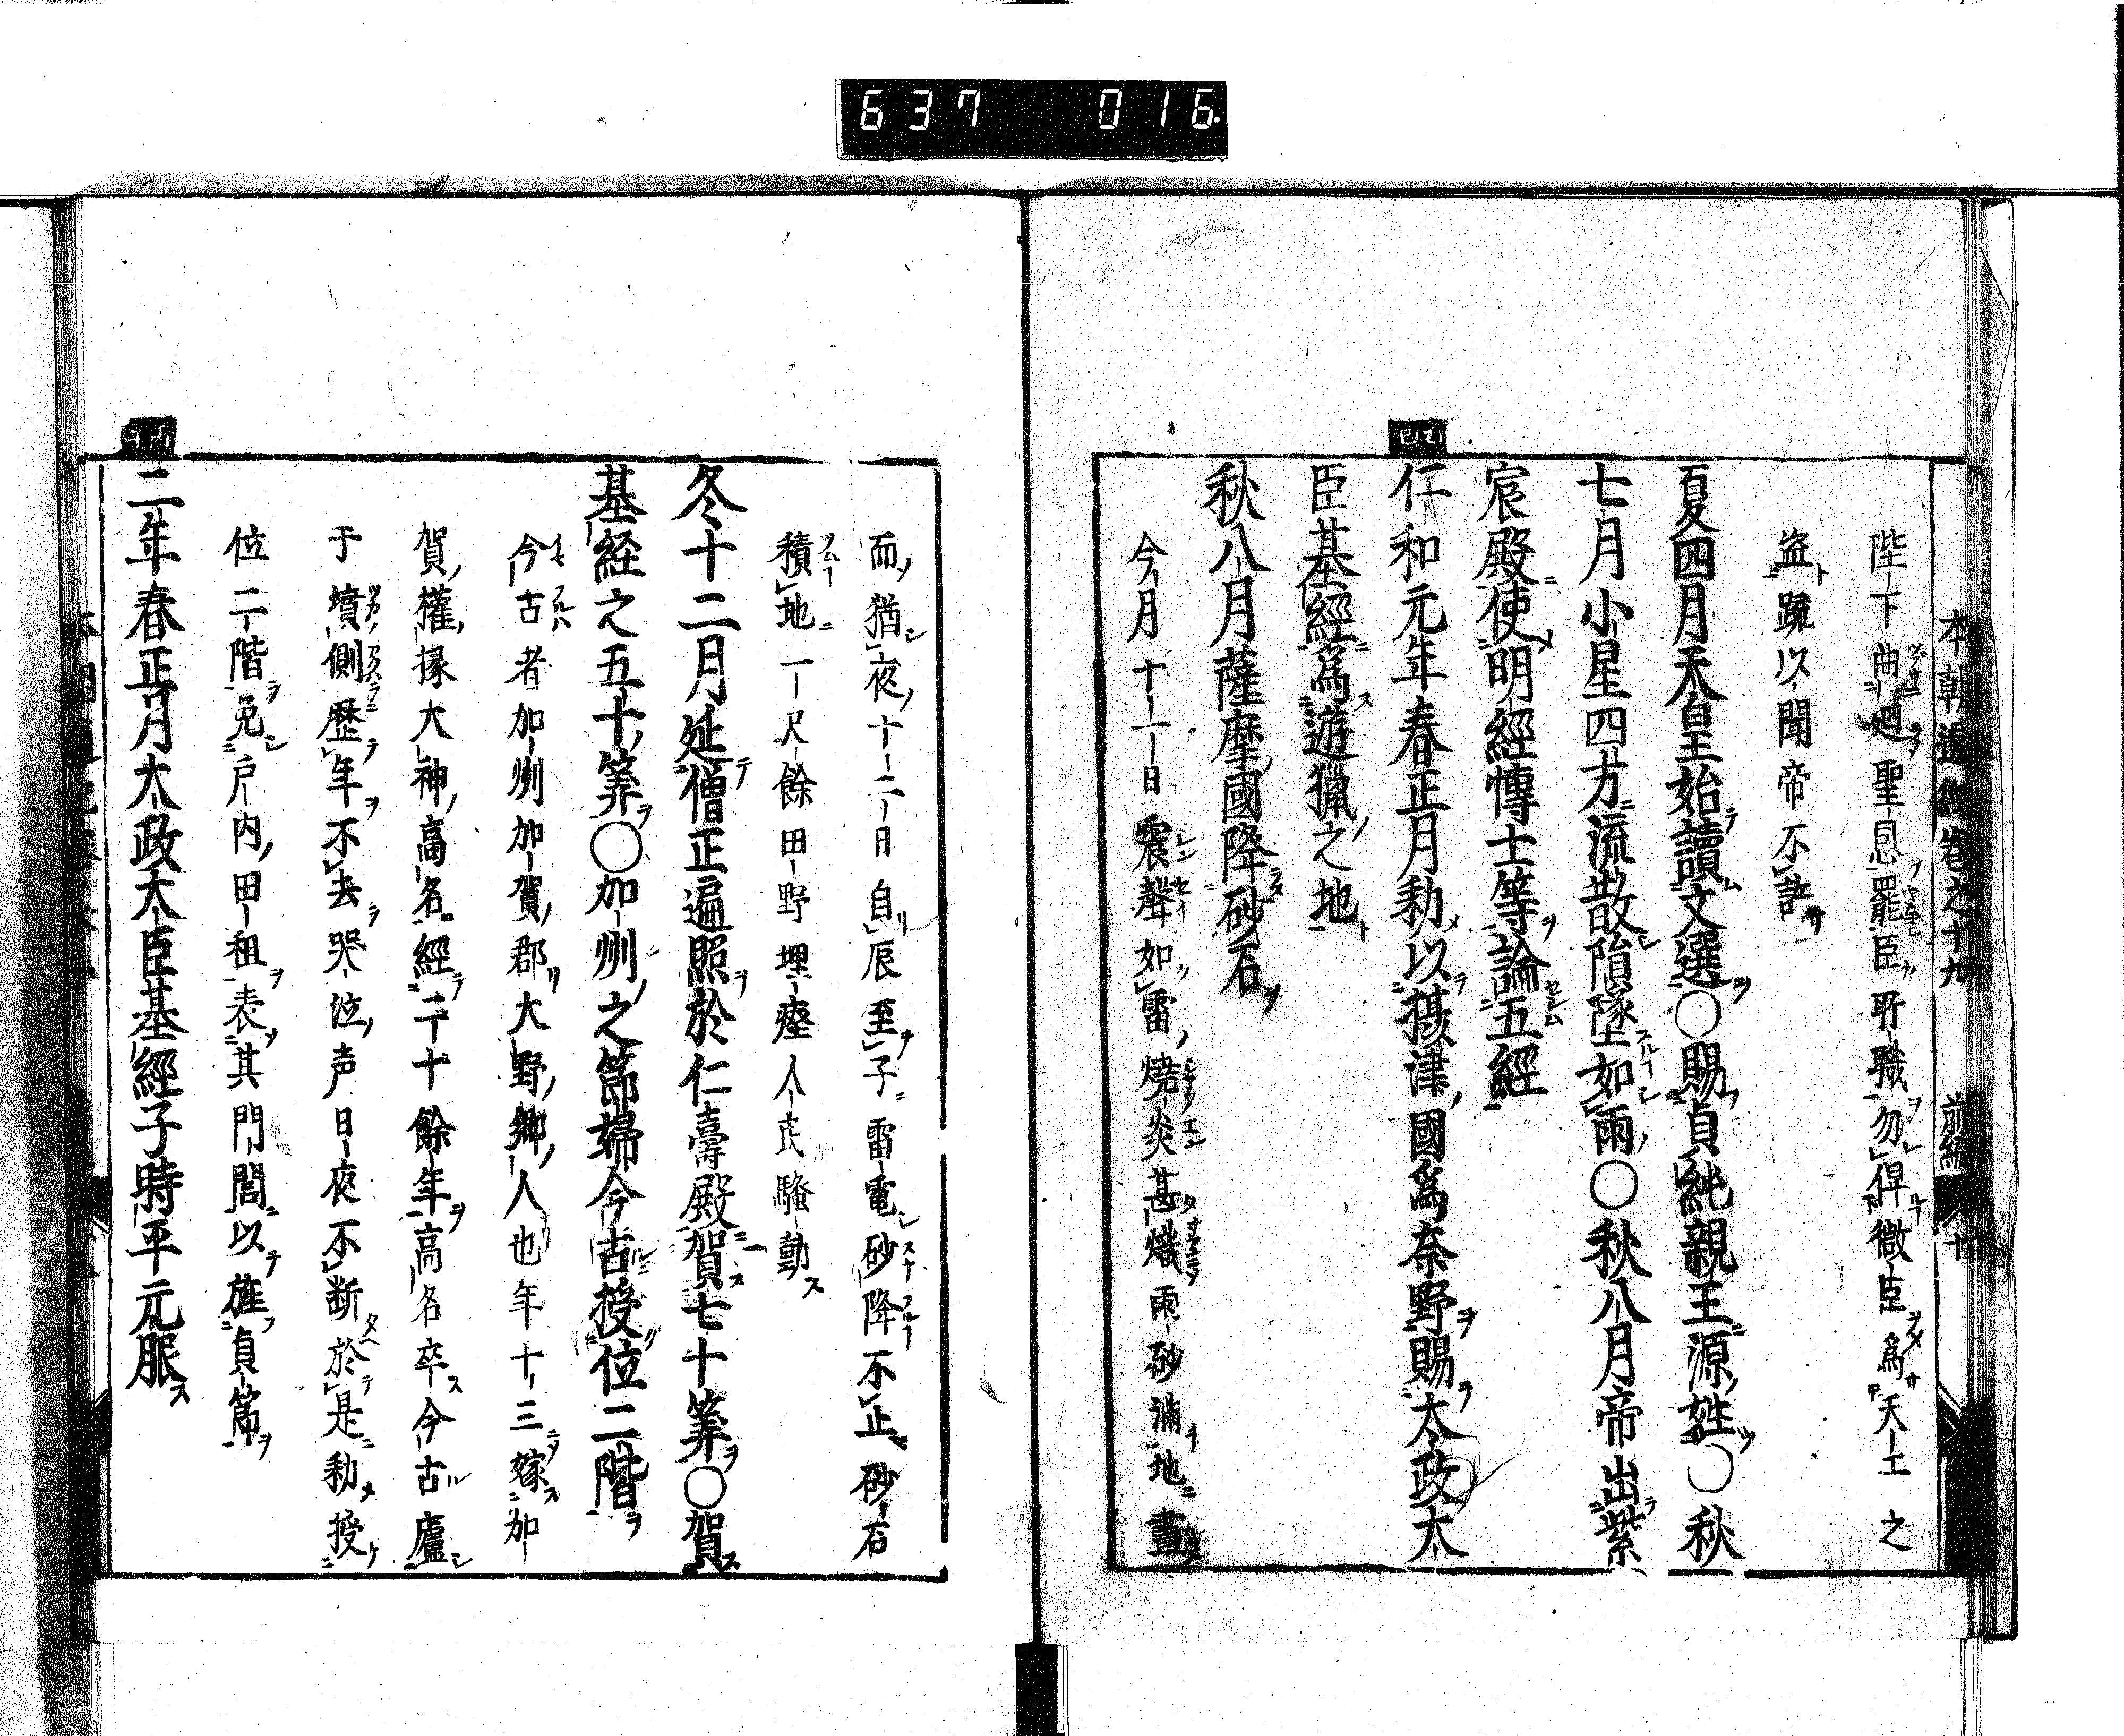 637 016
本朝通紀卷之十九 前編 十
陛下曲廻聖恩罷臣所職勿俾微臣爲天工之
盗䟽以聞帝不許
夏四月天皇始讀文選〇賜貞純親王源姓〇秋
七月小星四方流散隕墜如雨〇秋八月帝出紫
宸殿使明經博士等論五經
乙巳
仁和元年春正月勅以攝津國爲奈野賜太政大
臣基經爲遊獵之地
秋八月薩摩國降砂石
今月十一日震聲如雷燒炎甚熾雨砂滿地晝
而猶夜十二日自辰至子雷電砂降不止砂石
積地一尺餘田野埋瘞人民騷動
冬十二月延僧正遍照於仁壽殿賀七十筭〇賀
基経之五十筭〇加州之節婦今古授位二階
今古者加州加賀郡大野鄉人也年十三嫁加
賀權掾大神高名經二十餘年高名卒今古廬
于墳側歷年不去哭泣声日夜不断於是勅授
位二階免戸内田租表其門閭以旌貞節
二年春正月太政大臣基經子時平元服